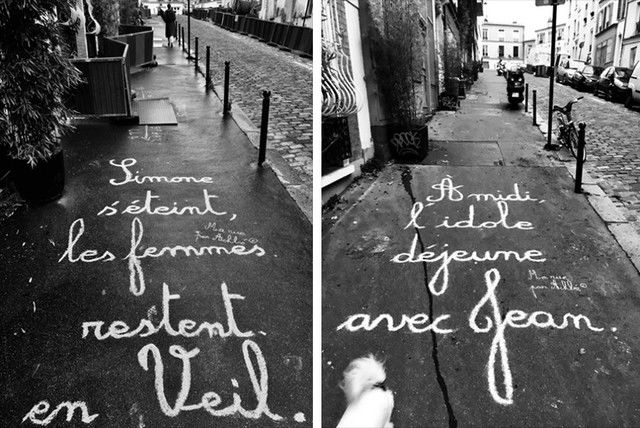 Simone
s'éteint,
les femmes
restent.
en Veil.
Ma rue
par Achbé ©
À midi,
l'idole
déjeune
avec Jean.
Ma rue
par Achbé ©